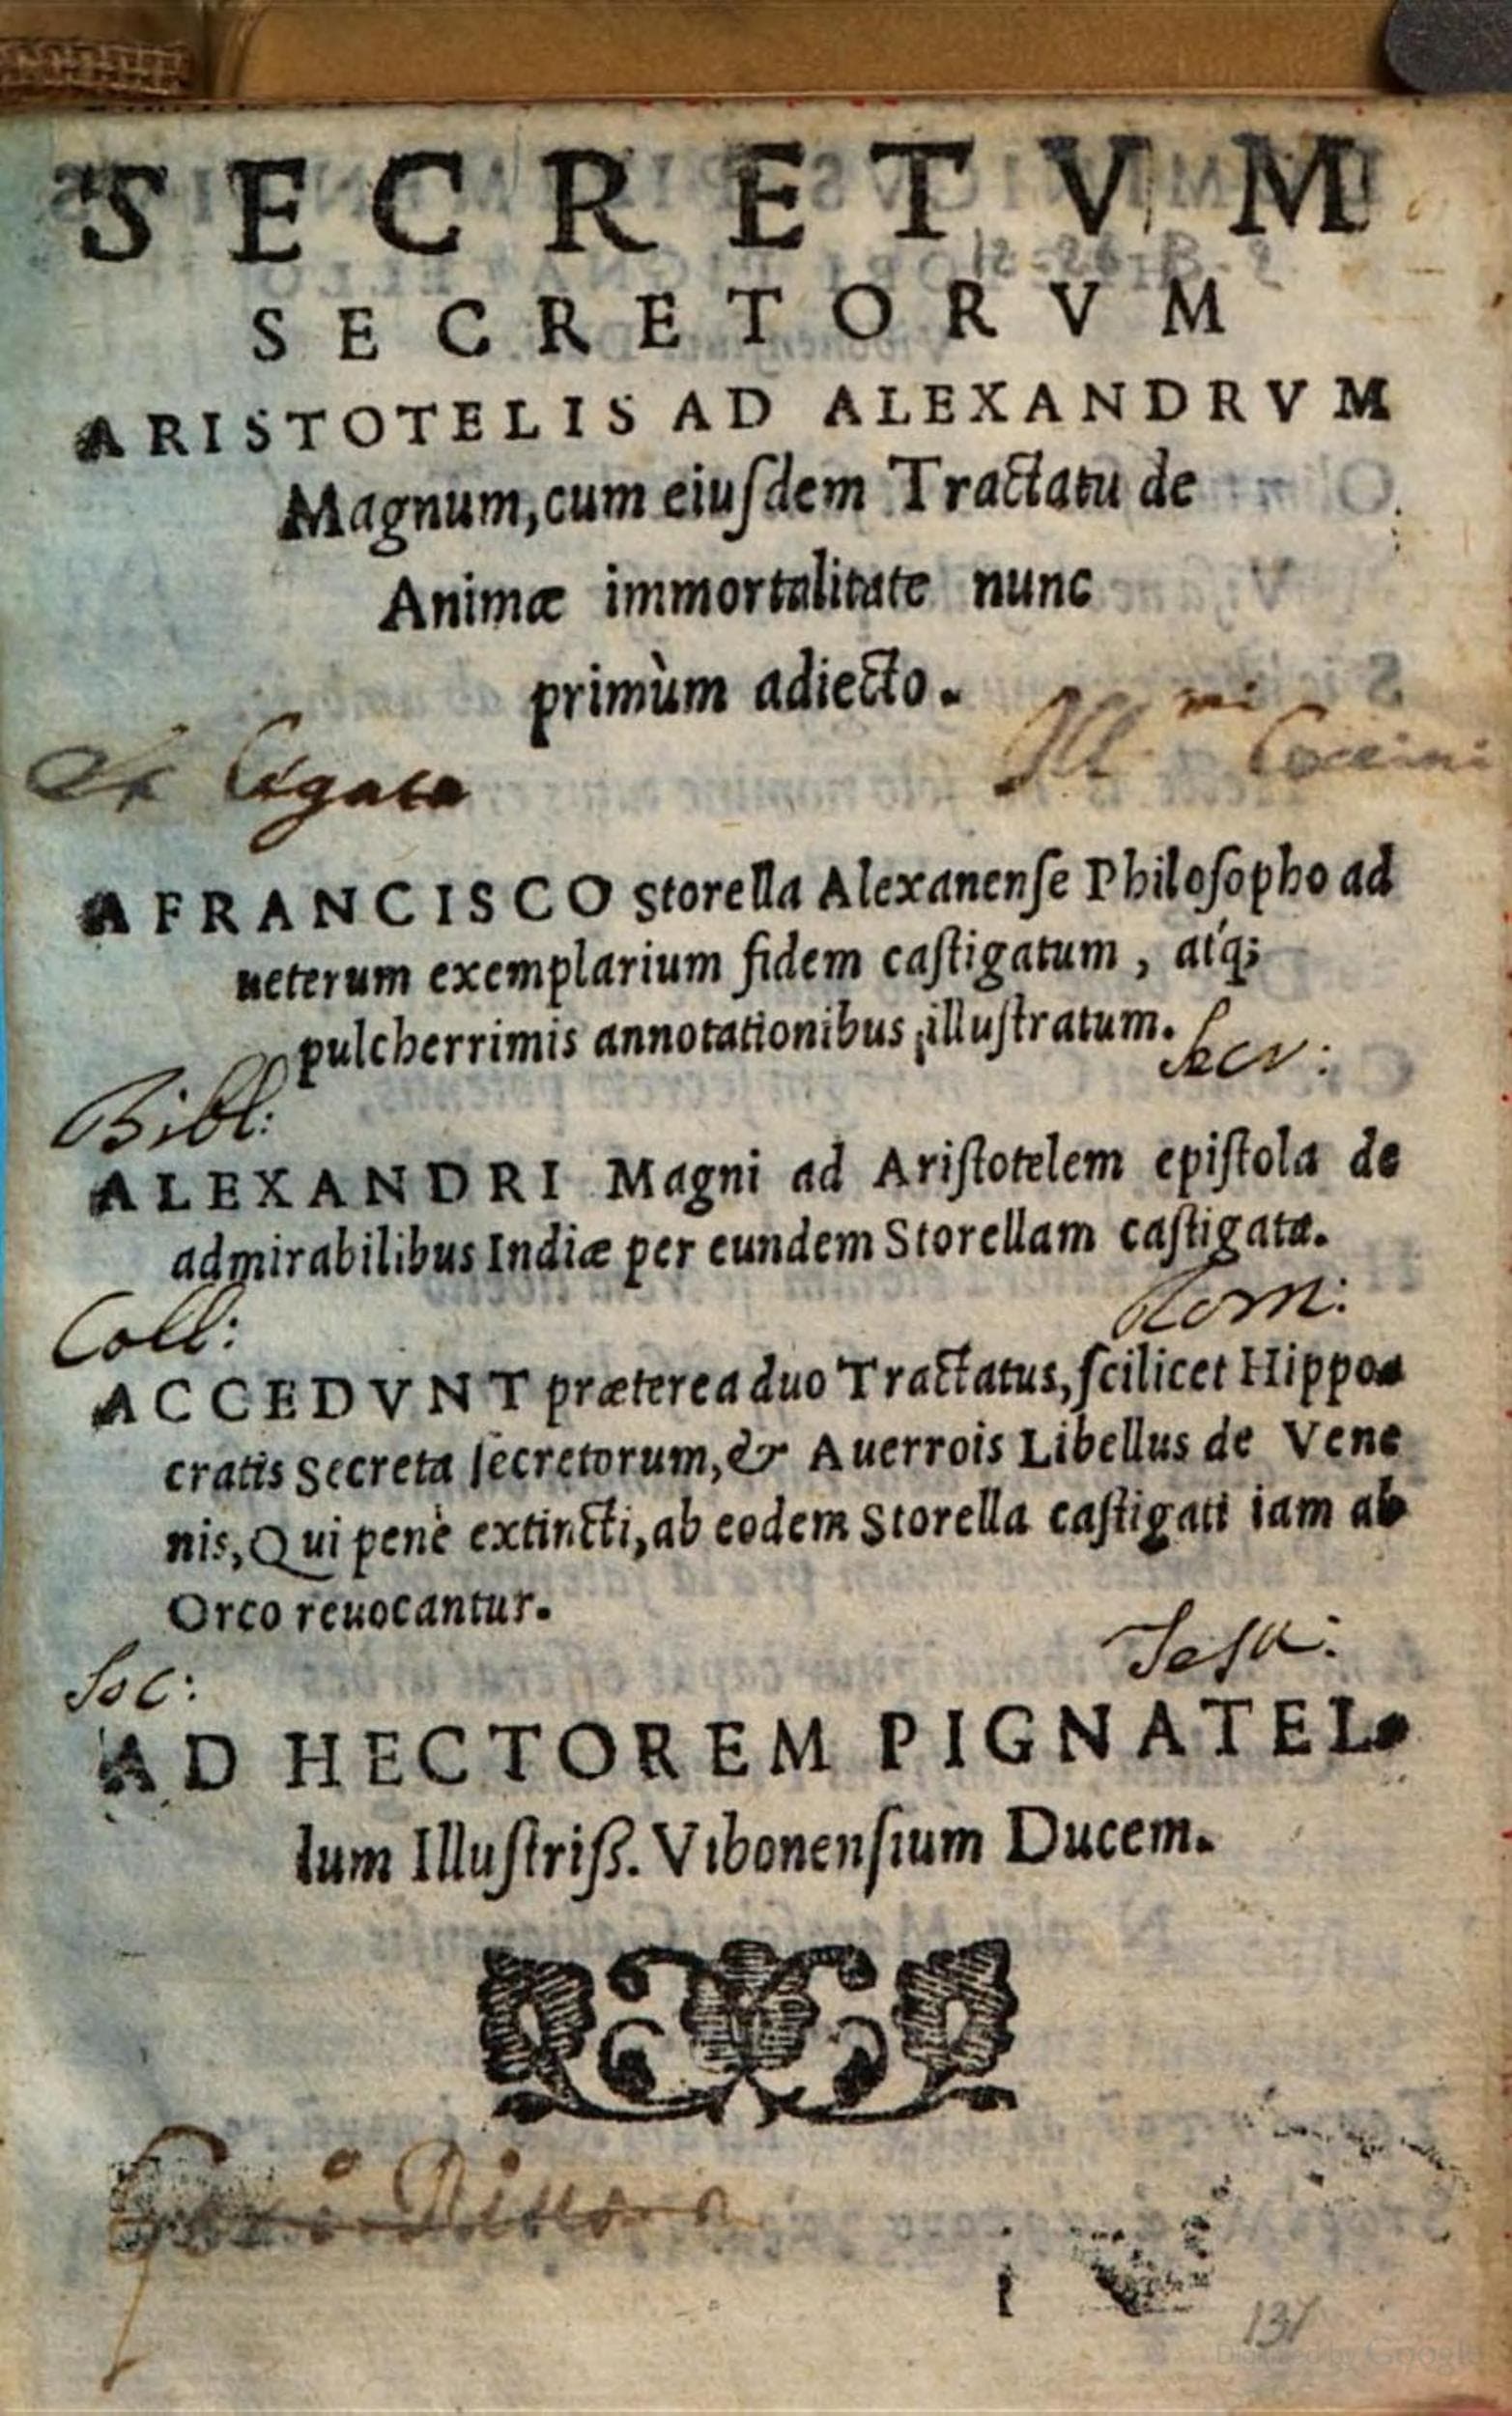 SECRETVM
SECRETORVM
ARISTOTELIS AD ALEXANDRVM
Magnum, cum eiuſdem Tractatu de
Animæ immortalitate nunc
primùm adiecto.
Ex Legato Ill.mi Coccini
A FRANCISCO Storella Alexanenſe Philoſopho ad
ueterum exemplarium fidem caſtigatum, atq;
pulcherrimis annotationibus illuſtratum.
Bibl: Secr:
ALEXANDRI Magni ad Ariſtotelem epiſtola de
admirabilibus Indiæ per eundem Storellam caſtigata.
Coll: Rom:
ACCEDVNT præterea duo Tractatus, ſcilicet Hippo-
cratis Secreta ſecretorum, & Auerrois Libellus de Vene
nis, Qui penè extincti, ab eodem Storella caſtigati iam ab
Orco reuocantur.
Soc: Jesu:
AD HECTOREM PIGNATEL-
lum Illuſtriſs. Vibonenſium Ducem.
131
Digitized by Google